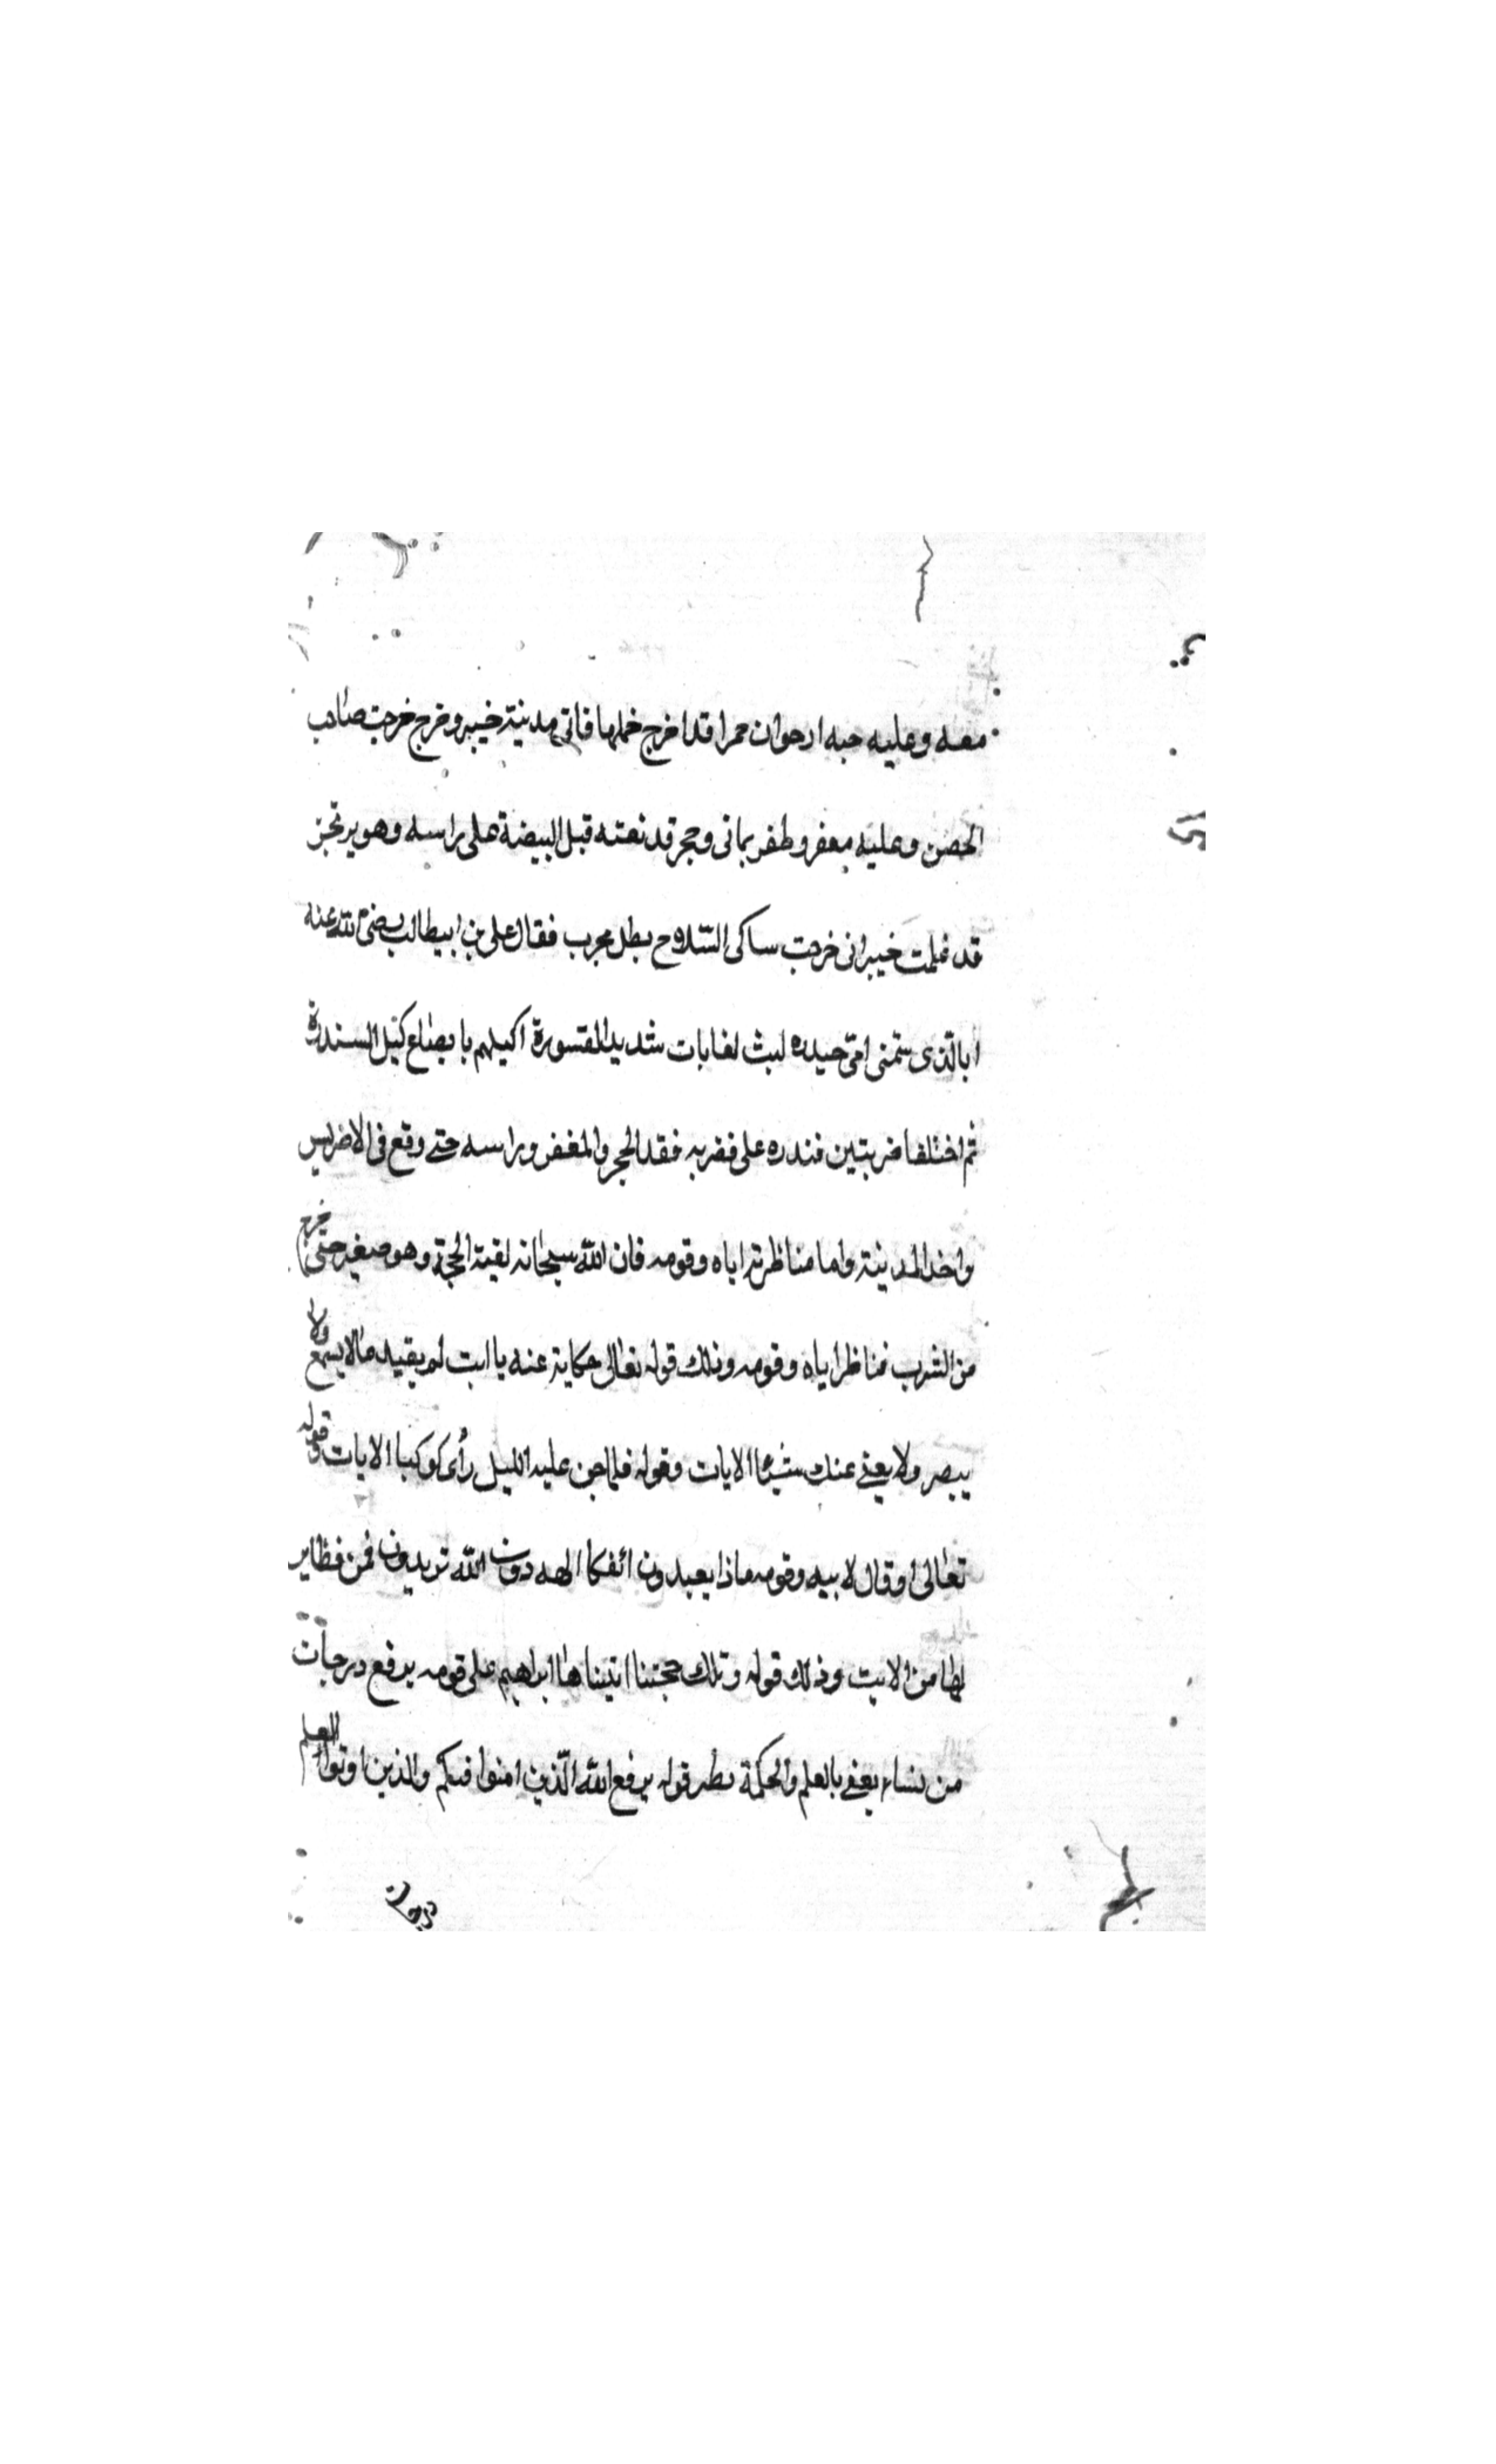 معه وعليه حبه ارحوان حمرا قد اخرج خملها فاتى مدينة خيبر وخرج مرحب صاحب
الحصن وعليه معفر وطفر يمانى وحجر قد نعته قبل البيضة على راسه وهو يرتجز
قد علمت خيبر انى مرحب ساكى السّلاح بطل مجرب فقال على بن ابيطالب رضى الله عنه
ابا الّذى سمّتنى امّى حيدره ليث لغابات شديد القسورة اكيلهم با بصاع كيل السندرة
ثم اختلفا ضربتين فندره على فضربه فقد الحجر والمغفر وراسه حتى وقع فى الاضراس
واخذ المدينة واما مناظرته اباه وقومه فان الله سبحانه لقيه الحجة وهو صغير حتى خرج
من السرب فناظر اباه وقومه وذلك قوله تعالى حكاية عنه يا ابت لم يعبد ما لا يسمع ولا
يبصر ولا يعنى عنك شيئا الايات وقوله فلما جن عليه الليل رأى كوكبا الايات وقوله
تعالى او قال لابيه وقومه ماذا يعبدون ائفكا الهه دون الله تريدون فمن نظاير
لها من الايت وذلك قوله وتلك حجتنا اتيناها ابراهيم على قومه يرفع درجات
من نساء يعنى بالعلم والحكمة نظر قوله يرفع الله الّذين امنوا فيكم والذين اوتوا العلم
درجات